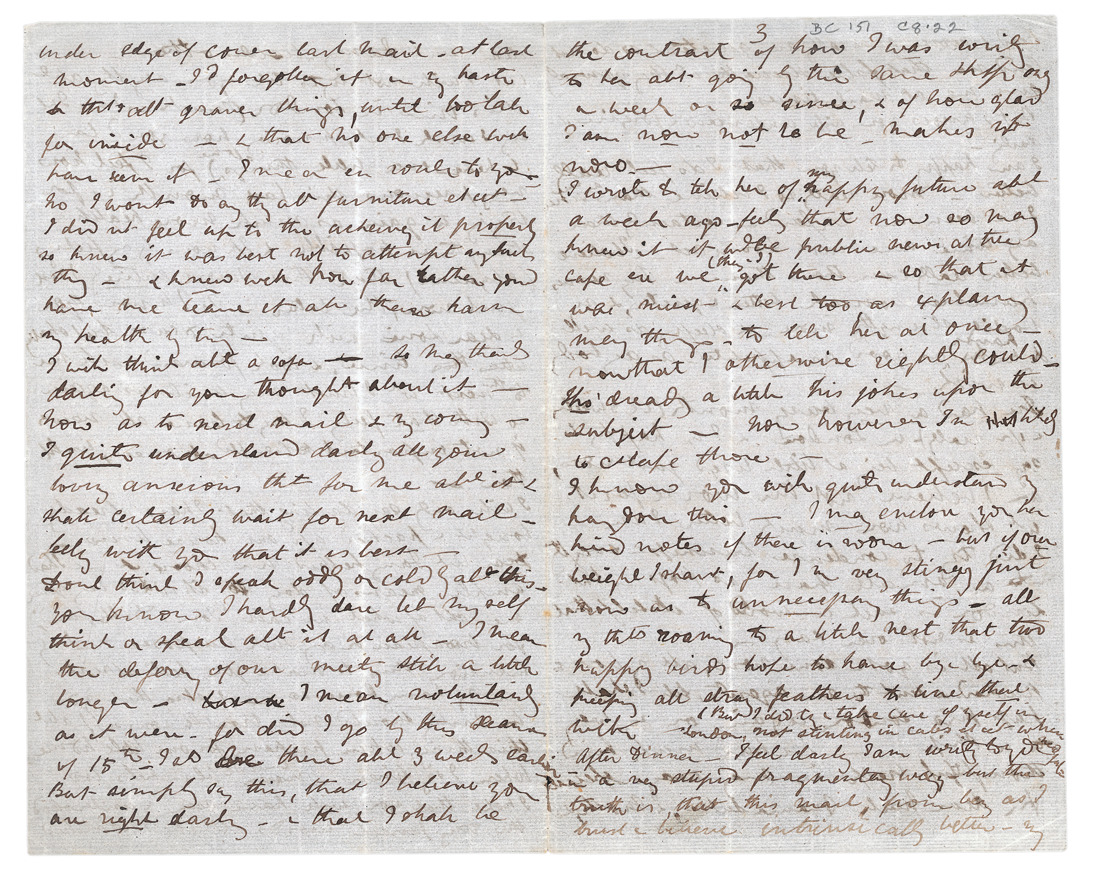 under edge of cover last mail - at last
moment - I'd forgotten it in my haste
& thts abt graver things, until too late
for inside - & that no one else wd
have seen it - I mean en route to you -
No I wont do any thg abt furniture etcet -
I did nt feel up to the acheiving it properly
so knew it was best not to attempt any such
thg - & knew well how far rather you'd
have me leave it all than harm
my health by try -
I will think abt a sofa - so many thanks
darling for your thought about it -
Now as to next mail & my coming -
I quite understand darling all your
loving anxious tht for me abt it &
shall certainly wait for next mail -
feelg with you that it is best -
Dont think I speak oddly or coldly abt this -
you know I hardly dare let myself
think or speak abt it at all - I mean
the deferrg of our meetg still a little
longer - I mean voluntarily
as it were - for did I go by this steamer
of 15th - I'd be there abt 3 weeks earlier
But simply say this, that I believe you
are right darling - & that I shall be
BC 151 C8.22
3
the contrast of how I was writg
to her abt going by the same ship only
a week or so since, & of how glad
I am now not to be! makes
now -
I wrote to tell her of my happy future abt
a week ago - feelg that now so many
knew it it wd be public news at the
Cape ere we (they?) got there & so that it
was nicest & best too as explaing
many things - to tell her at once -
now that I otherwise rightly could -
Tho' already a little this jokes upon the
subject - now however I'm likely
to escape those -
I know you will quite understand my
havg done this - I may enclose you her
kind notes if there is room - but if over
weight I shant, for I'm very stingy just
now as to unnecessary things - all
my thts roaming to a little nest that two
happy birds hope to have bye bye - &
keeping all stray feathers to line that
with - (But I did take care of myself in
London, not stinting in cabs etcet
After Dinner - I feel darlg I am writg to you
in a very stupid fragmentary way - but the
truth is, that this mail, from beg as I
trust & believe intrinsically better - my